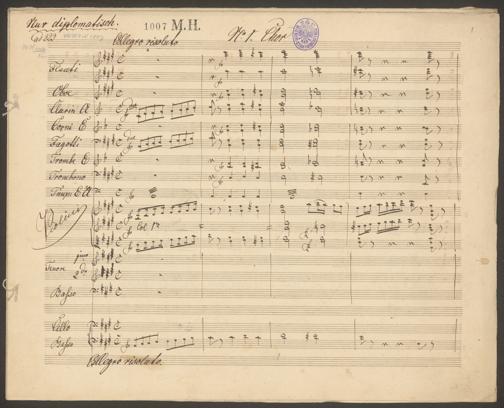 Nur diplomatisch.
1007 M.H.
Allegro risoluto
No 1. Chor
Flauti
Oboe
Clarin A
Corni E
Fagotti
Trombe E
Trombone
Timpi E A
Violini
Col 1mo
Tenori
1mo
2do
Basso
Cello
Basso
Allegro risoluto